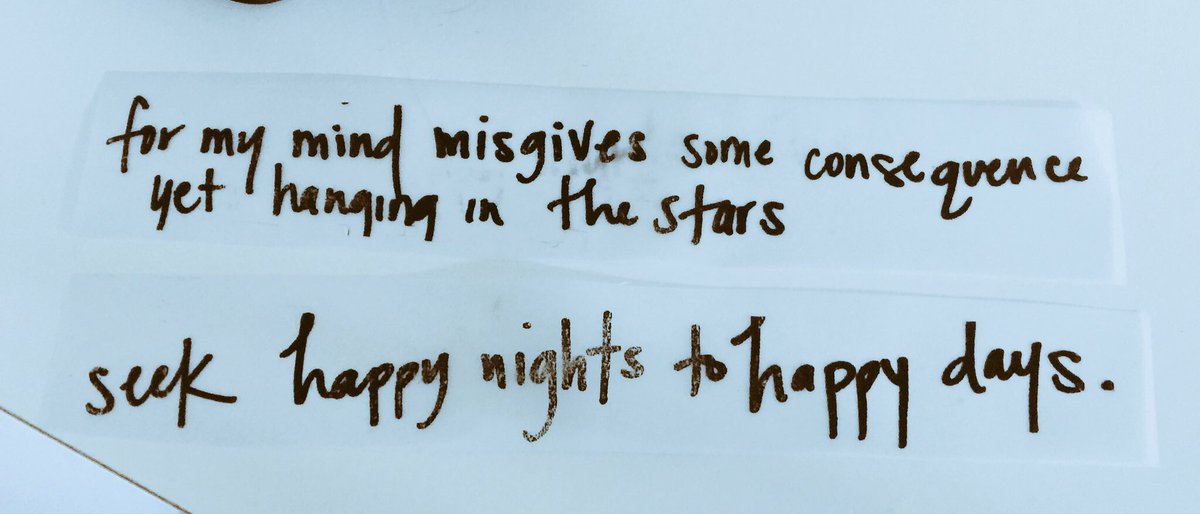 for my mind misgives some consequence
yet hanging in the stars
seek happy nights to happy days.